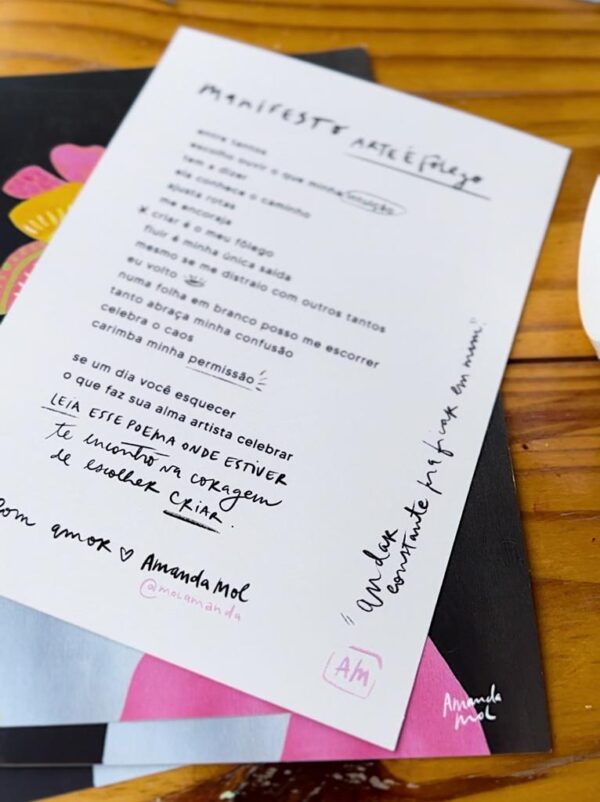 manifesto ARTE É fôlego
entre tantos
escolho ouvir o que minha intuição
tem a dizer
ela conhece o caminho
ajusta rotas
me encoraja
* criar é o meu fôlego
fluir é minha única saída
mesmo se me distraio com outros tantos
eu volto
numa folha em branco posso me escorrer
tanto abraça minha confusão
celebra o caos
carimba minha permissão
se um dia você esquecer
o que faz sua alma artista celebrar
LEIA ESSE POEMA ONDE ESTIVER
te encontro na coragem
de escolher CRIAR.
com amor ♡ Amanda Mol
@molamanda
"andar
constante pra ficar em mim."
AM
Amanda
Mol